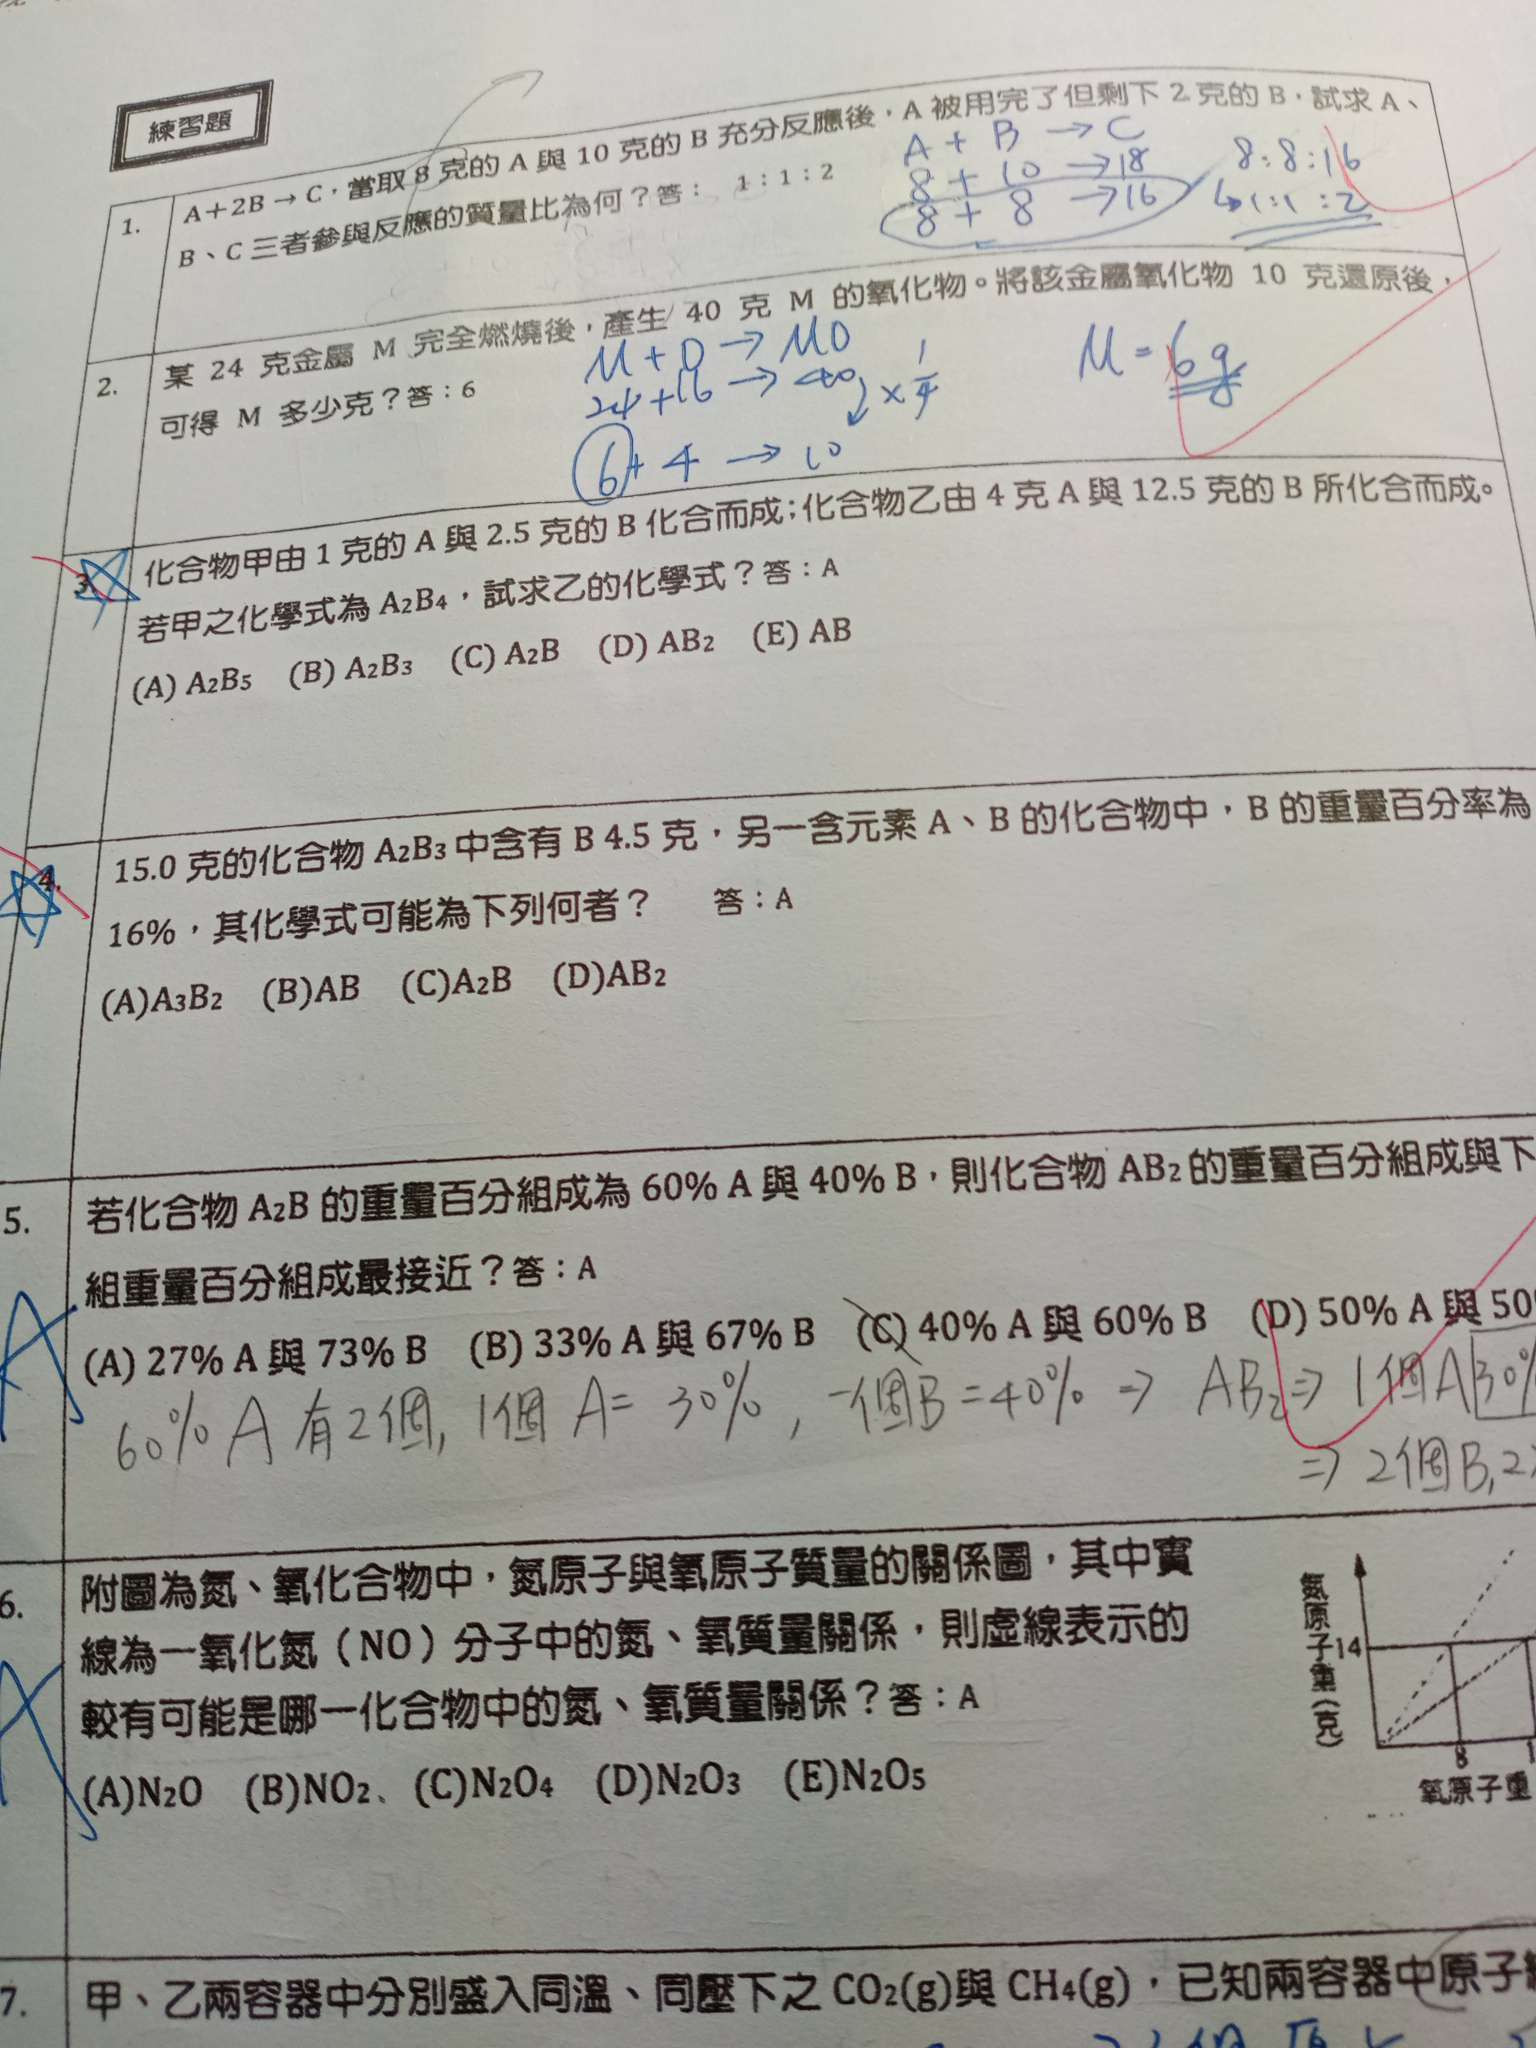 練習題
1. A＋2B → C，當取 8 克的 A 與 10 克的 B 充分反應後，A 被用完了但剩下 2 克的 B，試求 A、
B、C 三者參與反應的質量比為何？答： 1：1：2
A + B → C
8 + 10 → 18
8 + 8 → 16
8:8:16
↳ 1:1:2
2. 某 24 克金屬 M 完全燃燒後，產生 40 克 M 的氧化物。將該金屬氧化物 10 克還原後，
可得 M 多少克？答：6
M + O → MO
24 + 16 → 40
× 1/4
6 + 4 → 10
M = 6g
3. 化合物甲由 1 克的 A 與 2.5 克的 B 化合而成；化合物乙由 4 克 A 與 12.5 克的 B 所化合而成。
若甲之化學式為 A₂B₄，試求乙的化學式？答：A
(A) A₂B₅ (B) A₂B₃ (C) A₂B (D) AB₂ (E) AB
4. 15.0 克的化合物 A₂B₃ 中含有 B 4.5 克，另一含元素 A、B 的化合物中，B 的重量百分率為
16%，其化學式可能為下列何者？ 答：A
(A)A₃B₂ (B)AB (C)A₂B (D)AB₂
5. 若化合物 A₂B 的重量百分組成為 60% A 與 40% B，則化合物 AB₂ 的重量百分組成與下
組重量百分組成最接近？答：A
A
(A) 27% A 與 73% B (B) 33% A 與 67% B (C) 40% A 與 60% B (D) 50% A 與 50%
60% A 有2個, 1個 A = 30%, 一個B = 40% ⇒ AB₂ ⇒ 1個A 30%
⇒ 2個B, 2
6. 附圖為氮、氧化合物中，氮原子與氧原子質量的關係圖，其中實
線為一氧化氮（NO）分子中的氮、氧質量關係，則虛線表示的
較有可能是哪一化合物中的氮、氧質量關係？答：A
A
(A)N₂O (B)NO₂、 (C)N₂O₄ (D)N₂O₃ (E)N₂O₅
氮原子重(克)
14
8
氧原子重
7. 甲、乙兩容器中分別盛入同溫、同壓下之 CO₂(g)與 CH₄(g)，已知兩容器中原子